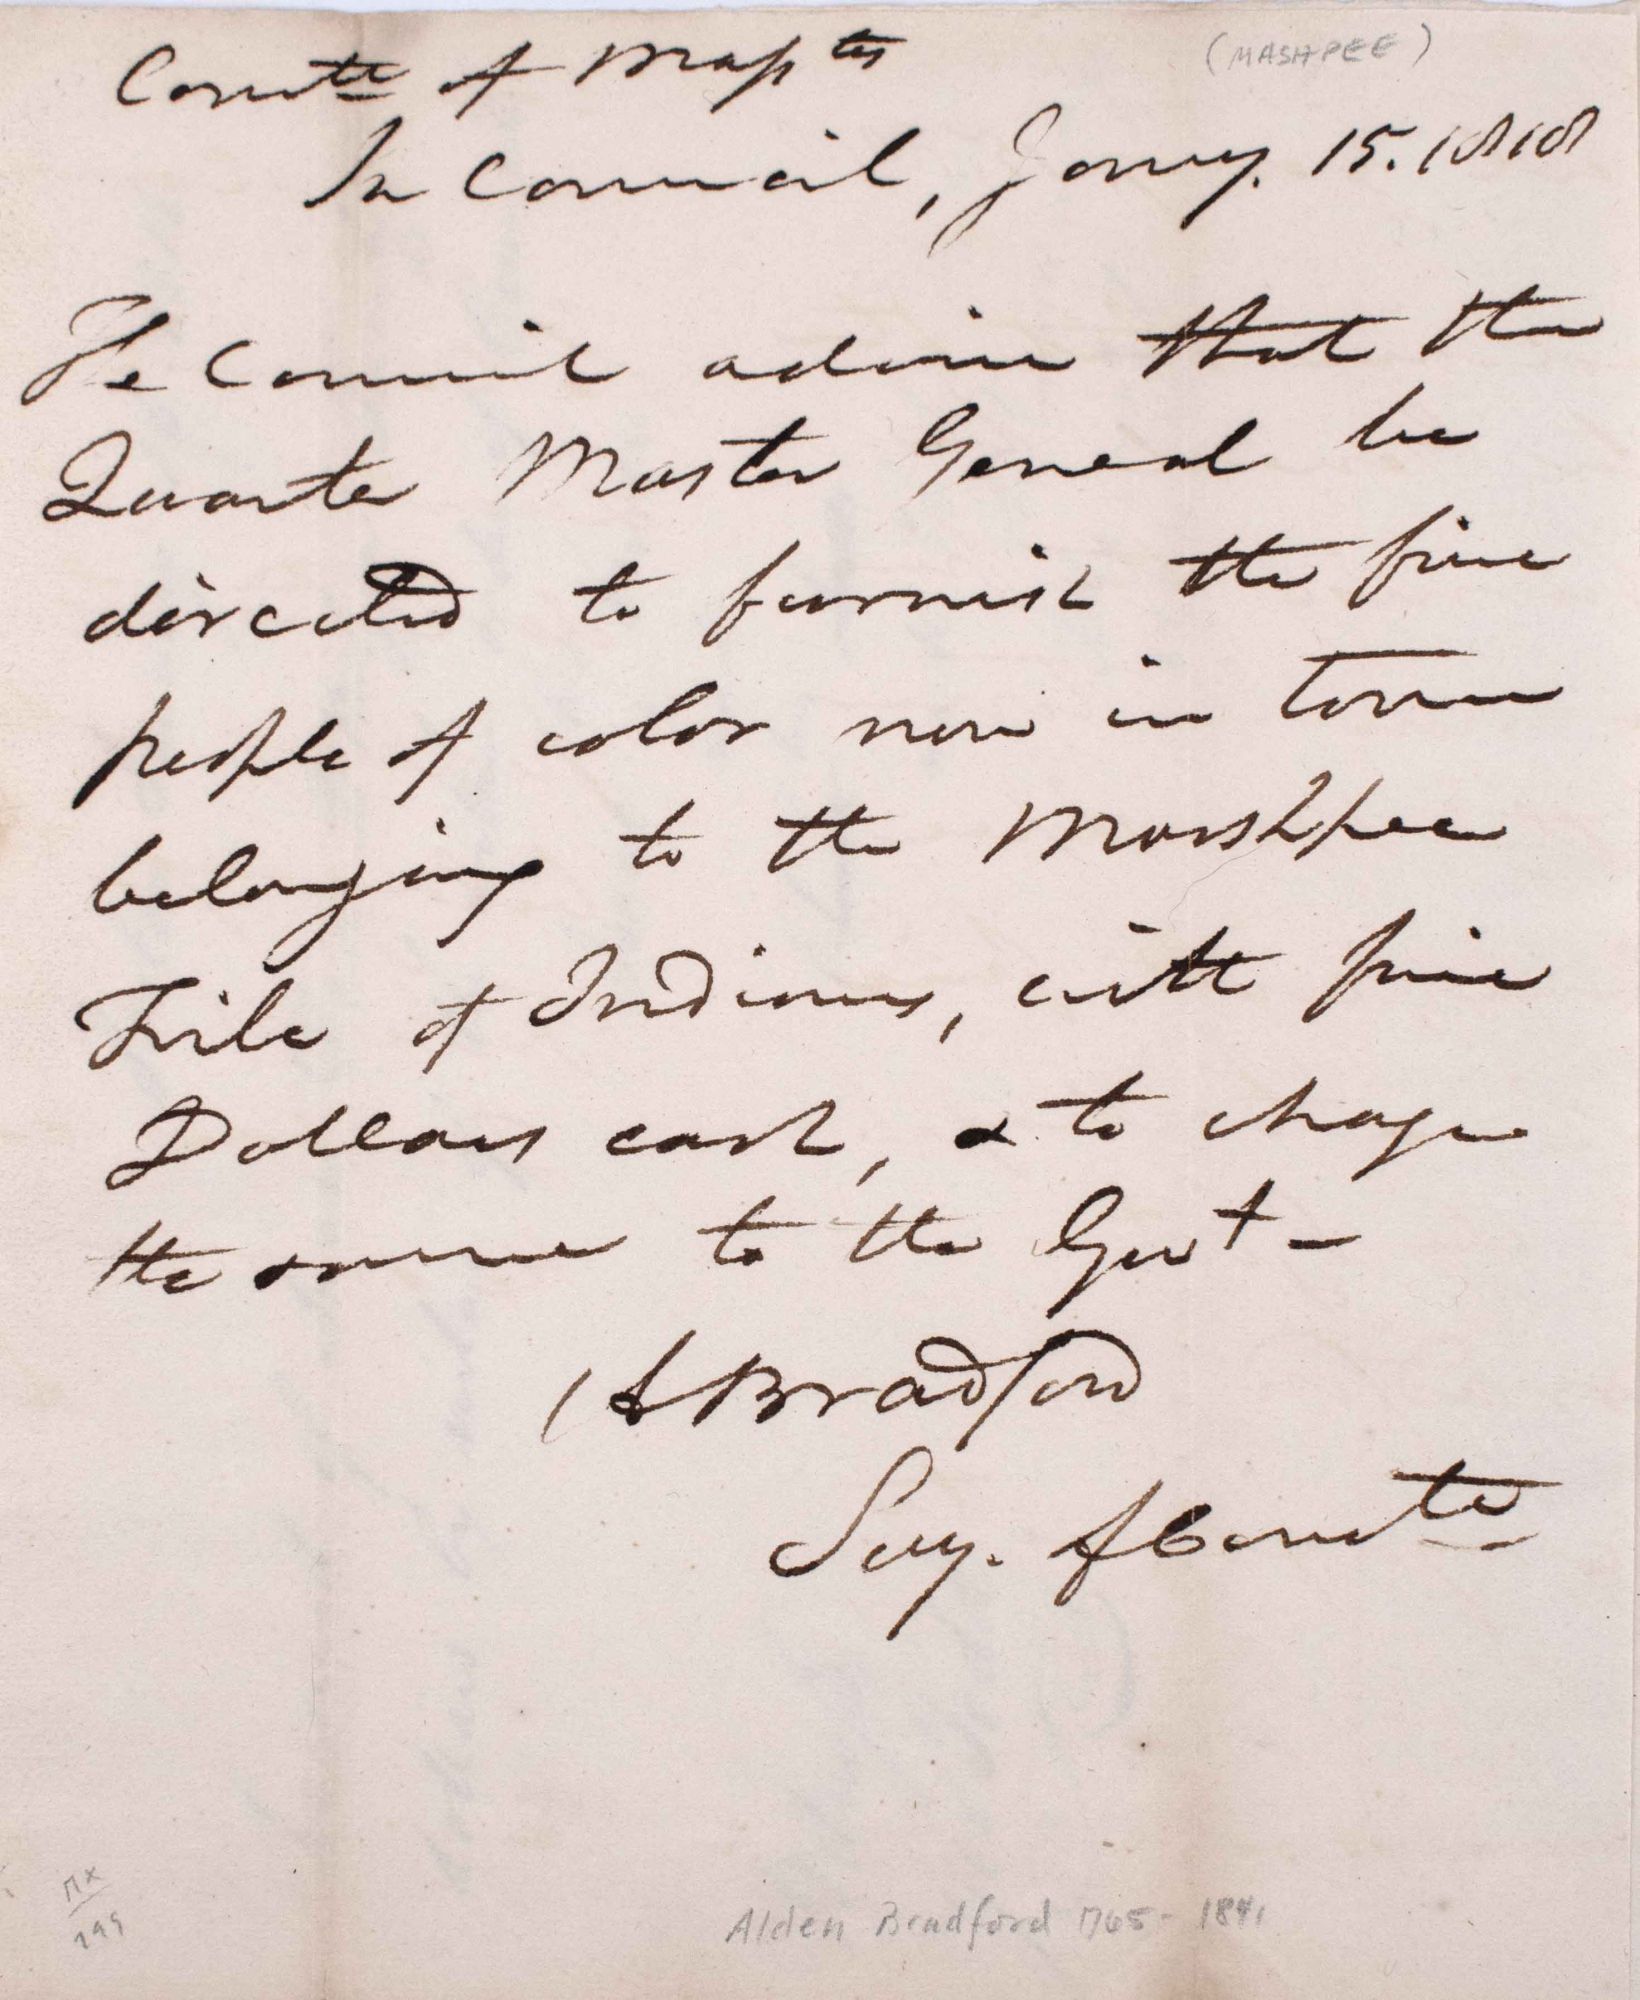 Comwth of Massts
(MASHPEE)
In Council, Jany. 15. 1818
The Council advise that the
Quarter Master General be
directed to furnish the five
people of color now in town
belonging to the Marshpee
Tribe of Indians, with five
Dollars cash, & to charge
the same to the Govt -
A Bradford
Secy. of Comwth
Alden Bradford 1765 - 1841